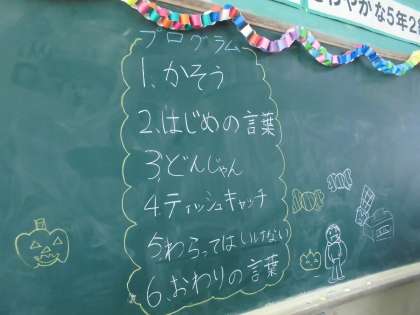 さわやかな5年2
プログラム
1.かそう
2.はじめの言葉
3.どんじゃん
4.ティッシュキャッチ
5.わらってはいけない
6.おわりの言葉